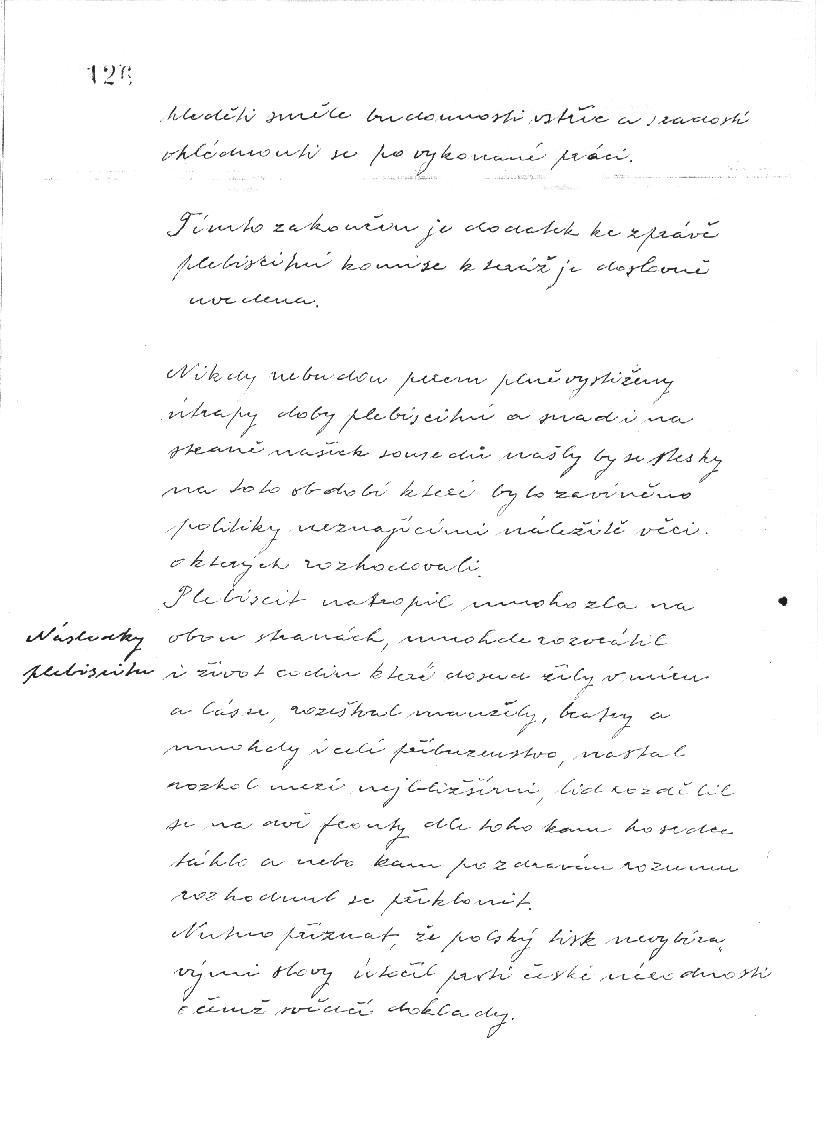 126
hleděti směle budoucnosti vstříc a s radostí
ohlédnouti se po vykonané práci.
Tímto zakončen je dodatek ke zprávě
plebiscitní komise kteráž je doslovně
uvedena.
Nikdy nebudou perem plně vystiženy
útrapy doby plebiscitní a snad i na
straně našich sousedů našly by se stesky
na toto období které bylo zaviněno
politiky neznajícími náležitě věci
o kterých rozhodovali.
Plebiscit natropil mnoho zla na
Následky
plebiscitu
obou stranách, mnohde rozvrátil
i život rodin které dosud žily v míru
a lásce, rozeštval manžely, bratry a
mnohdy i celé příbuzenstvo, nastal
rozkol mezi nejbližšími, lid rozdělil
se na dvě fronty dle toho kam ho srdce
táhlo a nebo kam po zdravém rozumu
rozhodnul se přiklonit.
Nutno přiznat, že polský tisk nevybíra-
vými slovy útočil proti české národnosti
o čemž svědčí doklady.